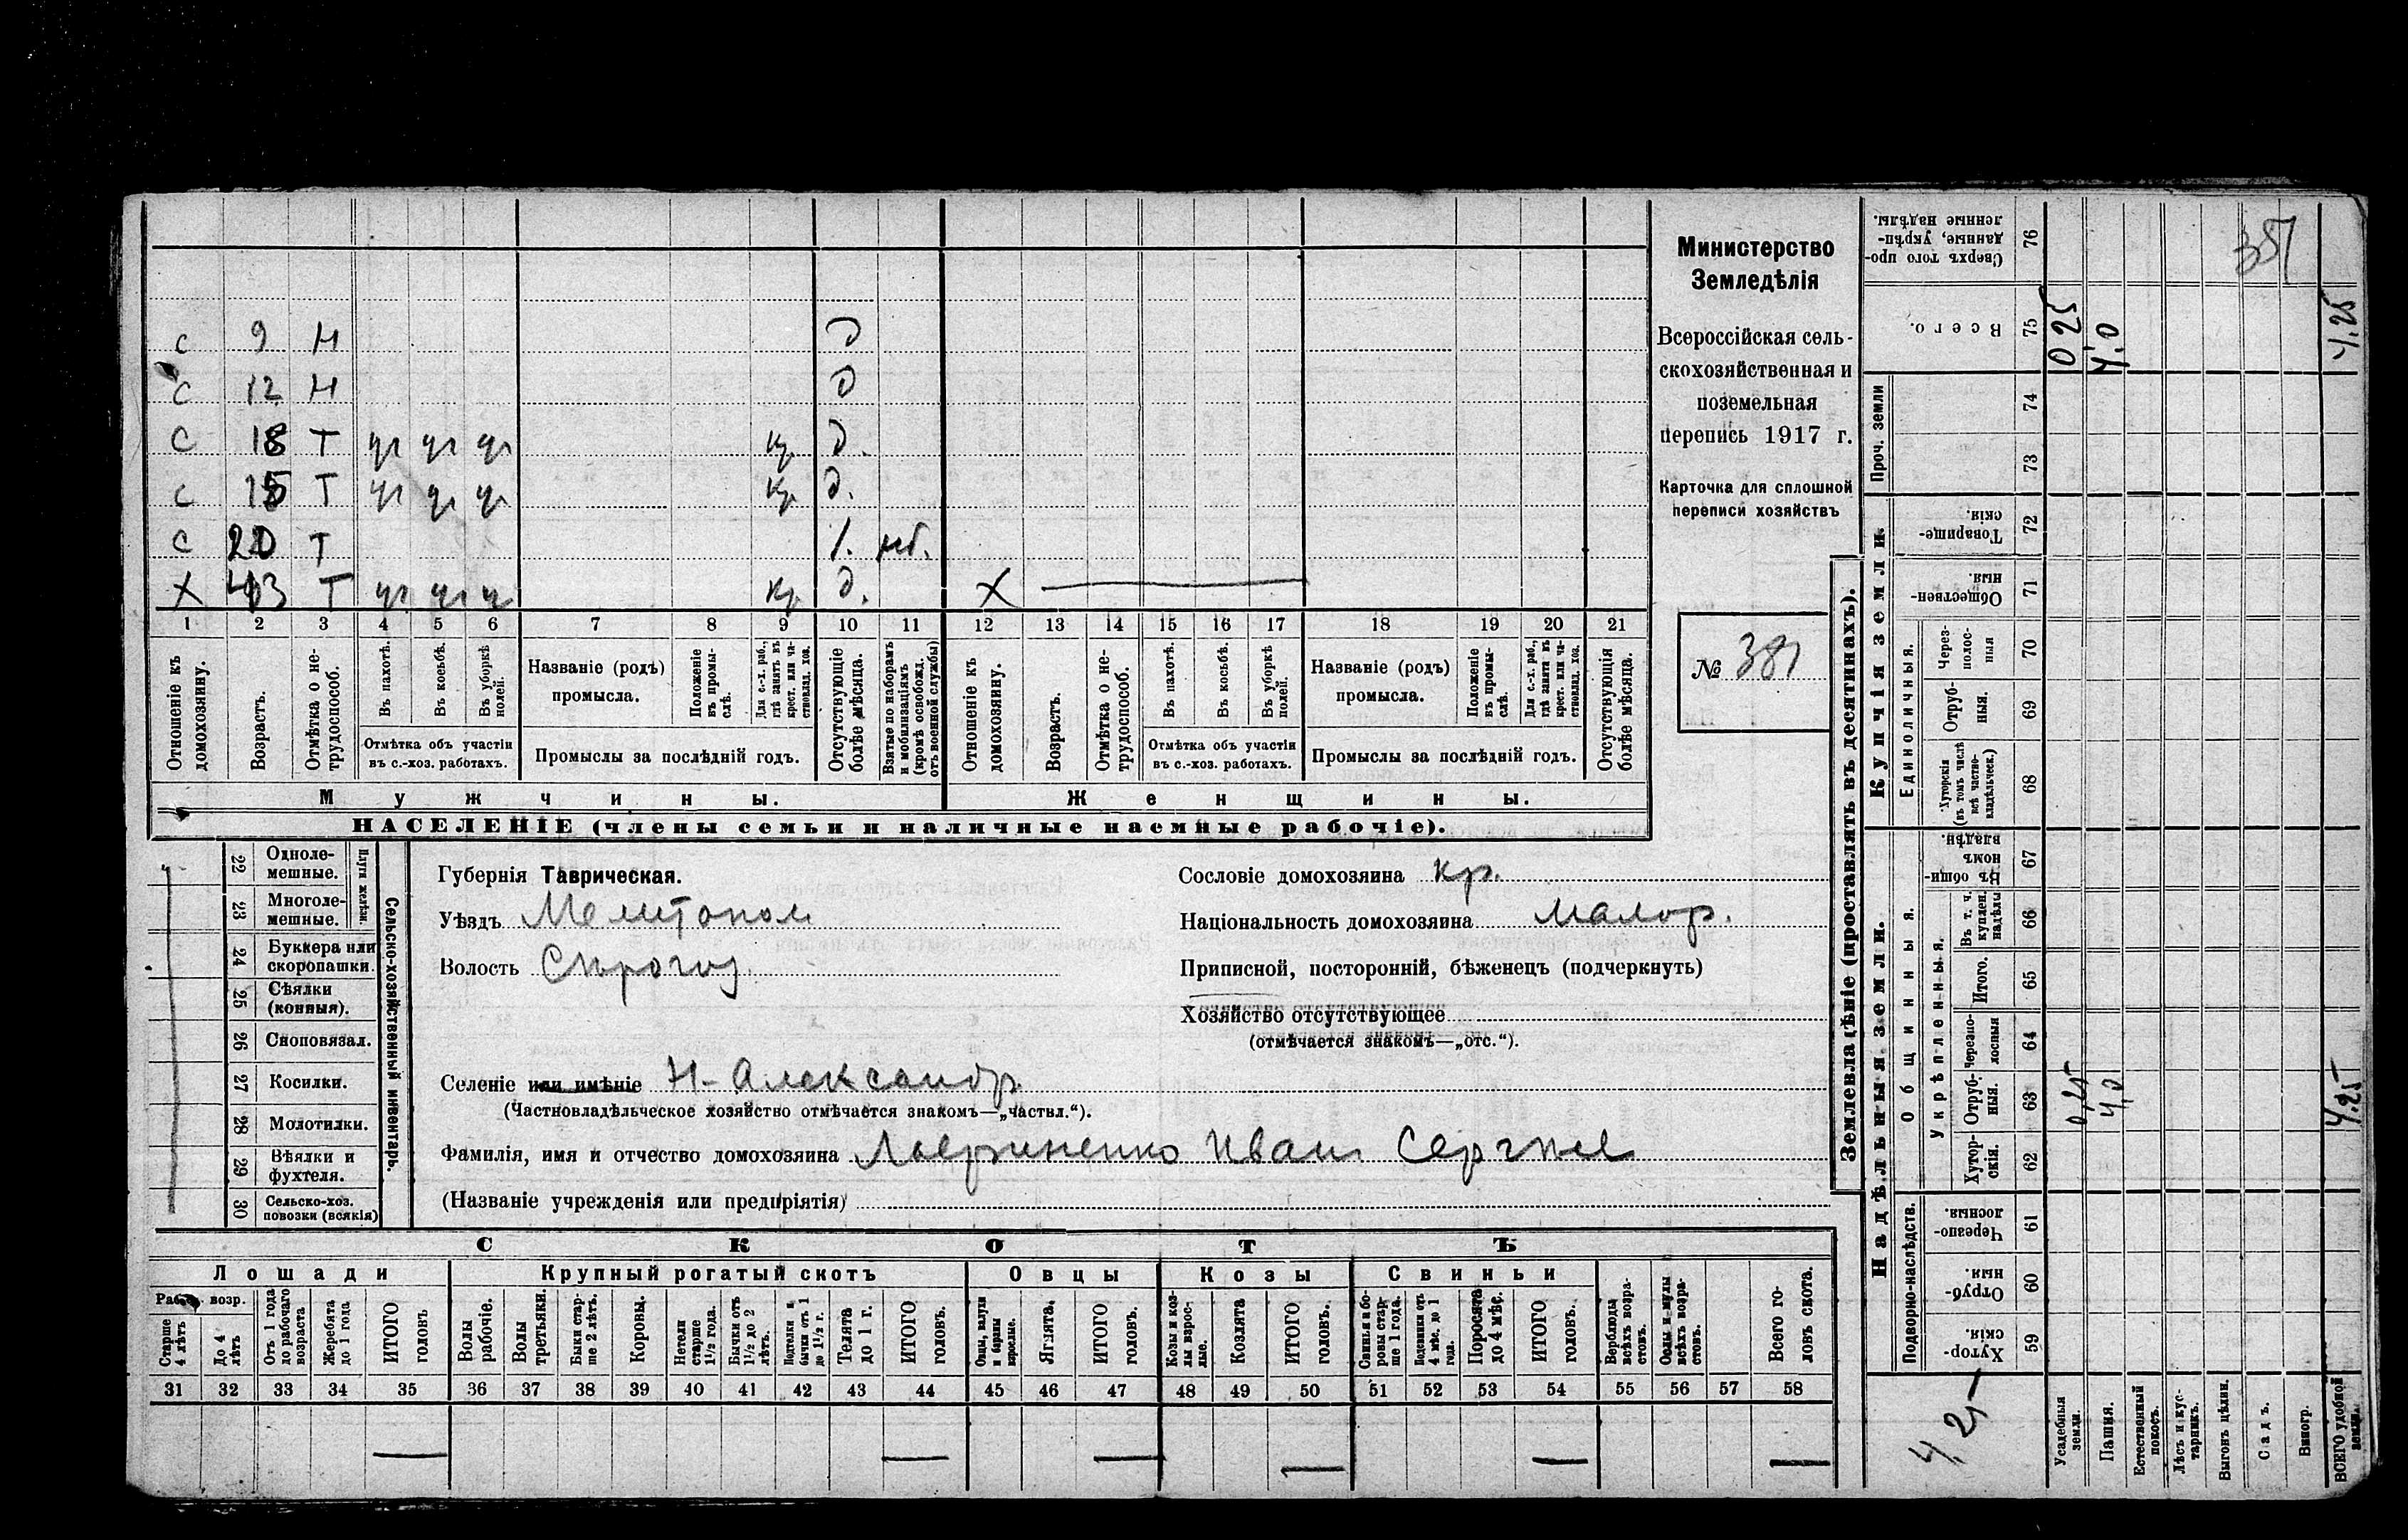 с 9 Н д
с 12 Н д
с 18 Т кр д.
с 15 Т кр д.
с 20 Т 1. нб.
Х 43 Т кр д. Х —
1 2 3 4 5 6 7 8 9 10 11 12 13 14 15 16 17 18 19 20 21
Отношеніе къ домохозяину.
Возрастъ.
Отмѣтка о не-трудоспособ.
Въ пахотѣ.
Въ косьбѣ.
Въ уборкѣ полей.
Отмѣтка объ участіи въ с.-хоз. работахъ.
Названіе (родъ) промысла.
Положеніе въ промы-слѣ.
Для с.-х. раб., гдѣ занятъ въ крест. или ча-стновлад. хоз.
Промыслы за послѣдній годъ.
Отсутствующіе болѣе мѣсяца.
Взятые по наборамъ и мобилизаціямъ (кромѣ освобожд. отъ военной службы)
Отношеніе къ домохозяину.
Возрастъ.
Отмѣтка о не-трудоспособ.
Въ пахотѣ.
Въ косьбѣ.
Въ уборкѣ полей.
Отмѣтка объ участіи въ с.-хоз. работахъ.
Названіе (родъ) промысла.
Положеніе въ промы-слѣ.
Для с.-х. раб., гдѣ занята въ крест. или ча-стновлад. хоз.
Промыслы за послѣдній годъ.
Отсутствующія болѣе мѣсяца.
Мужчины.
Женщины.
НАСЕЛЕНІЕ (члены семьи и наличные наемные рабочіе).
Министерство
Земледѣлія
Всероссійская сель-
скохозяйственная и
поземельная
перепись 1917 г.
Карточка для сплошной
переписи хозяйствъ
№ 381
22 Одноле-мешные.
23 Многоле-мешные.
Плуги желѣзн.
24 Буккера или скоропашки.
25 Сѣялки (конныя).
26 Сноповязал.
27 Косилки.
28 Молотилки.
29 Вѣялки и фухтеля.
30 Сельско-хоз. повозки (всякія)
Сельско-хозяйственный инвентарь.
Губернія Таврическая.
Уѣздъ Мелитопол
Волость Сѣрогоз
Селеніе или имѣніе Н-Александр
(Частновладѣльческое хозяйство отмѣчается знакомъ—„частвл.“).
Фамилія, имя и отчество домохозяина Лавриненко Иван Сергѣев
(Названіе учрежденія или предпріятія)
Сословіе домохозяина кр.
Національность домохозяина малор.
Приписной, посторонній, бѣженецъ (подчеркнуть)
Хозяйство отсутствующее
(отмѣчается знакомъ—„отс.“).
СКОТЪ
Лошади
Крупный рогатый скотъ
Овцы
Козы
Свиньи
Рабоч. возр.
Старше 4 лѣтъ
До 4 лѣтъ
Отъ 1 года до рабочаго возраста
Жеребята до 1 года
ИТОГО головъ
Волы рабочіе.
Волы третьяки.
Быки стар-ше 2 лѣтъ.
Коровы.
Нетели старше 1½ года.
Бычки отъ 1½ до 2 лѣтъ.
Подтелки и бычки отъ 1 до 1½ г.
Телята до 1 г.
ИТОГО головъ.
Овцы, валухи и бараны взрослые.
Ягнята.
ИТОГО головъ.
Козы и коз-лы взрос-лые.
Козлята
ИТОГО головъ.
Свиньи и бо-ровы стар-ше 1 года.
Подсвинки отъ 4 мѣс. до 1 года.
Поросята до 4 мѣс.
ИТОГО головъ.
Верблюды всѣхъ возра-стовъ.
Ослы и мулы всѣхъ возра-стовъ.
Всего го-ловъ скота.
31 32 33 34 35 36 37 38 39 40 41 42 43 44 45 46 47 48 49 50 51 52 53 54 55 56 57 58
— — — — — —
Землевладѣніе (проставлять въ десятинахъ).
Купчія земли.
Надѣльныя земли.
Сверхъ того про-данные, укрѣп-ленные надѣлы. 76
Всего. 75 0 25 4,0 4,25
Проч. земли 74 73
Товарище-скія. 72
Обществен-ныя. 71
Единоличныя.
Через-полос-ныя 70
Отруб-ныя. 69
Хуторскія (въ томъ числѣ всѣ частно-владѣльческ.) 68
Общинныя.
Въ общи-номъ владѣн. 67
Укрѣпленныя.
Въ т. ч. куплен. надѣлы 66
Итого. 65
Черезпо-лосныя 64
Отруб-ныя. 63 0,25 4,0 4,25
Хутор-скія. 62
Подворно-наслѣдств.
Черезпо-лосныя. 61
Отруб-ныя. 60
Хутор-скія. 59
4,25
Усадебныя земли.
Пашня.
Естественный покосъ.
Лѣсъ и кус-тарникъ.
Выгонъ цѣлин.
Садъ.
Виногр.
ВСЕГО удобной земли.